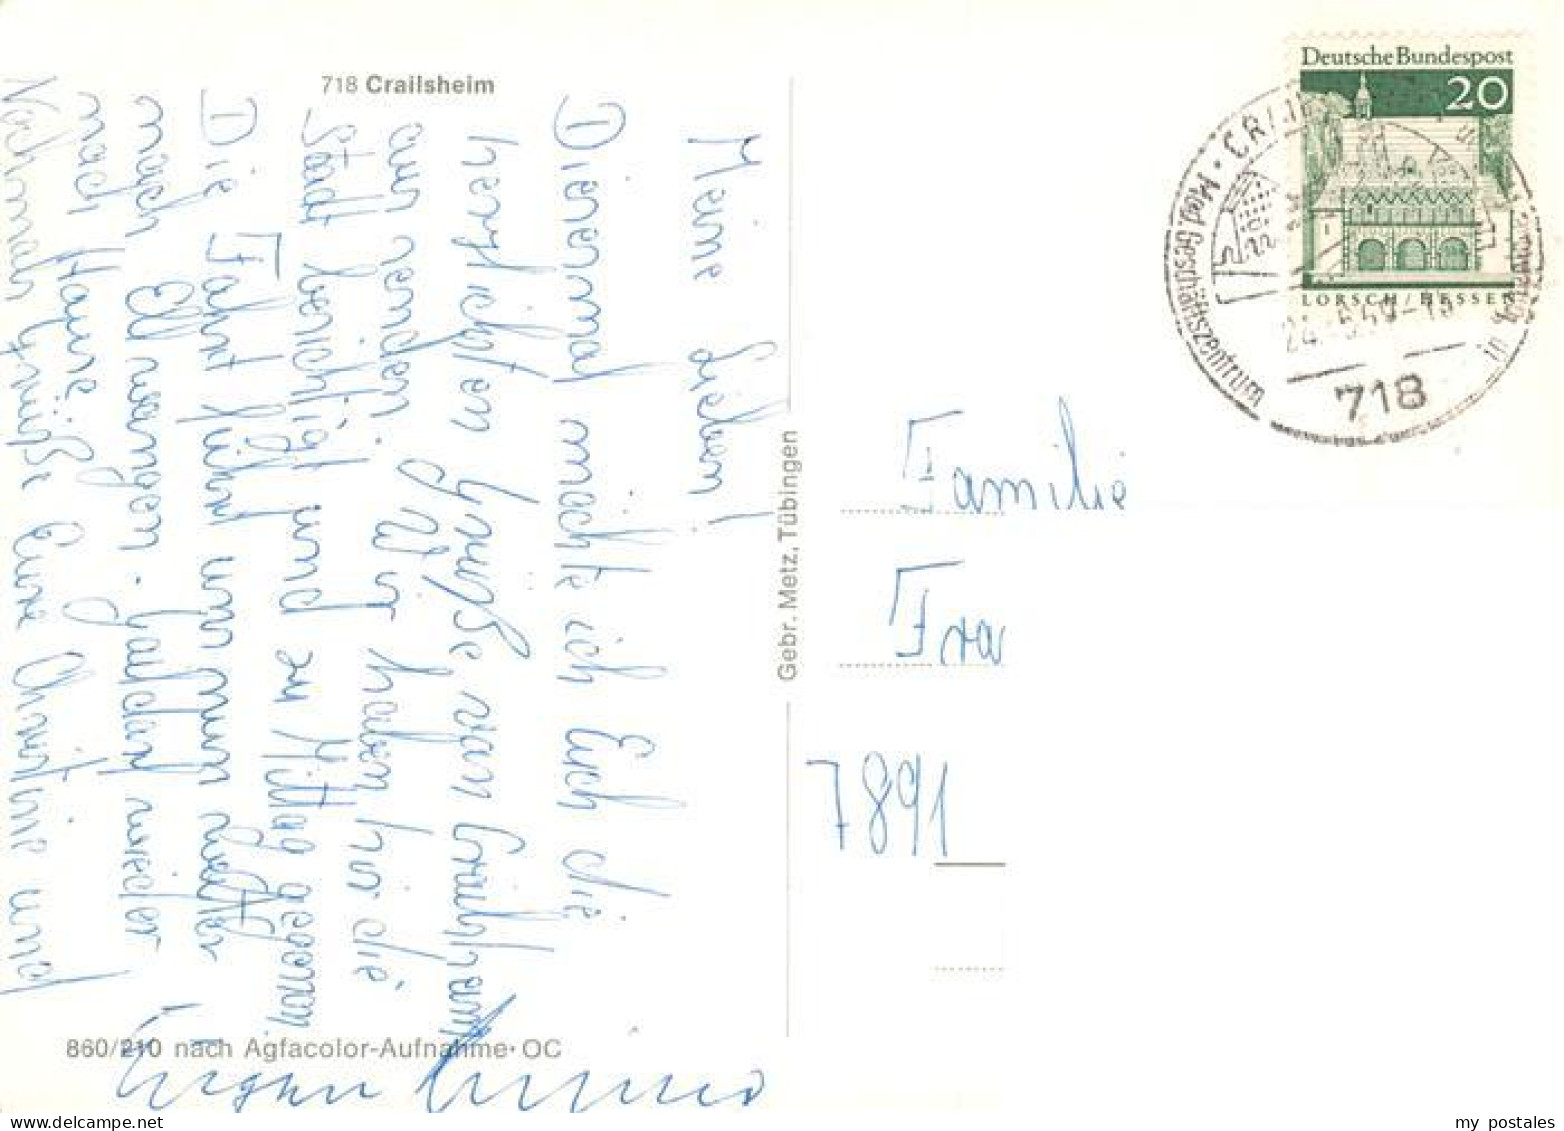 718 Crailsheim
Meine Lieben!
Dienmal möchte ich Euch die
herzlichsten Grüße von Crailsheim
aus senden. Wir haben hir die
Stadt besichtigt und zu Mittag gegessen.
Die Fahrt führt uns nun weiter
nach Ellwangen. Halbart wieder
nach Hause.
Nochmals Grüße Eure Christine und
Eugen
860/210 nach Agfacolor-Aufnahme · OC
Gebr. Metz, Tübingen
Deutsche Bundespost
20
LORSCH/HESSEN
Med. Geschäftszentrum
in
718
Familie
Fra
7891
my postales